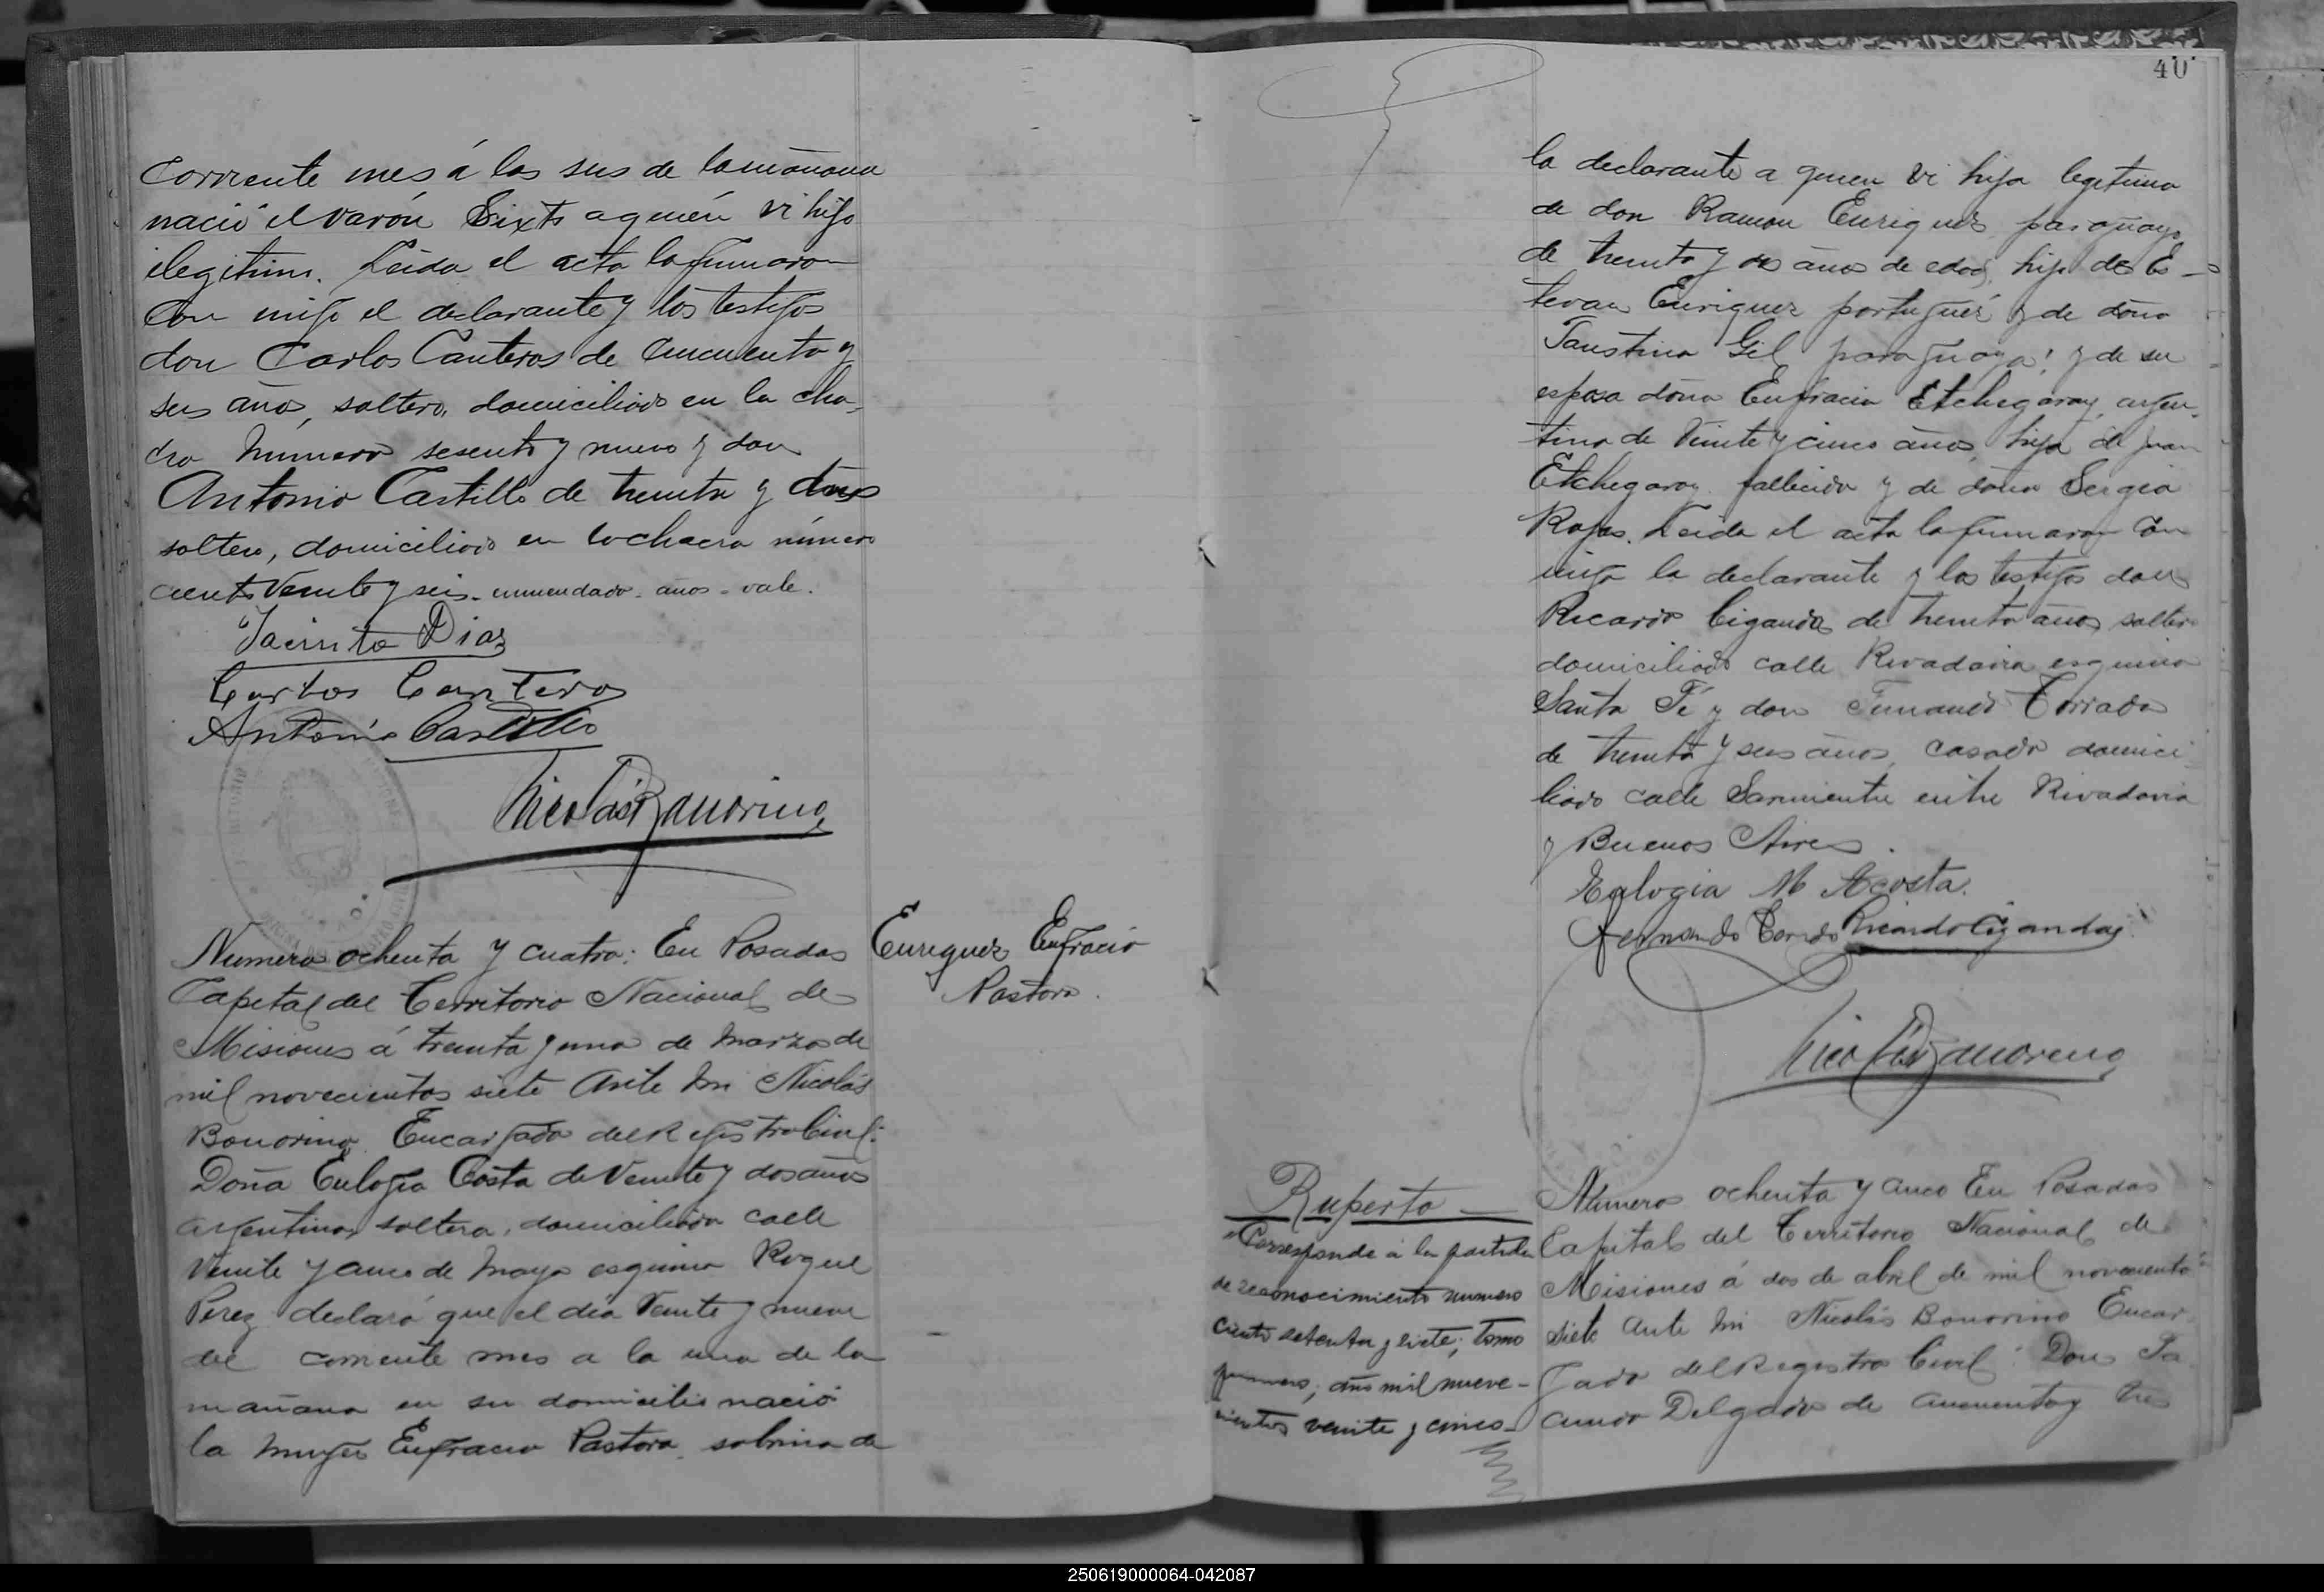 corriente mes á las seis de la mañana
nació el varón Sixto a quién vi hijo
ilegitimo. Leida el acta la firmaron
con migo el declarante y los testigos
don Carlos Canteros de cincuenta y
seis años, soltero, domiciliado en la cha-
cra número sesenta y nueve y don
Antonio Castillo de treinta y dos
soltero, domiciliado en la chacra número
ciento veinte y seis - enmendado - años - vale.
Jacinto Dias
Carlos Canteros
Antonio Castillo
Nicolás Bonorino
Numero ochenta y cuatro: En Posadas
Capital del Territorio Nacional de
Misiones á treinta y uno de Marzo de
mil novecientos siete ante mi Nicolás
Bonorino Encargado del Registro Civil:
Doña Eulogia Costa de veinte y dos años
argentina, soltera, domiciliada calle
Veinte y cinco de Mayo esquina Roque
Perez declaró que el dia veinte y nueve
del corriente mes a la una de la
mañana en su domicilio nació
la mujer Eufracia Pastora, sobrina de
Enriquez Eufracia
Pastora.
40
la declarante a quien vi hija legitima
de don Ramon Enriquez paraguayo
de treinta y dos años de edad, hijo de Es-
tevan Enriquez portugués y de doña
Faustina Gil paraguaya; y de su
esposa doña Eufracia Etchegaray, argen-
tina de veinte y cinco años, hija de Juan
Etchegaray fallecido y de doña Sergia
Rojas. Leida el acta la firmaron con
migo la declarante y los testigos don
Ricardo Ciganda de treinta años, soltero
domiciliado calle Rivadavia esquina
Santa Fé y don Fernando Torrado
de treinta y seis años, casado domici-
liado calle Sarmiento entre Rivadavia
y Buenos Aires.
Eulogia M Acosta.
Fernando Torrado Ricardo Ciganda
Nicolás Bonorino
Ruperto
Corresponde á la partida
de reconocimiento numero
ciento setenta y siete; tomo
primero; año mil nueve-
cientos veinte y cinco
Numero ochenta y cinco En Posadas
Capital del Territorio Nacional de
Misiones á dos de abril de mil novecientos
siete ante mi Nicolás Bonorino Encar-
gado del Registro Civil: Don Fa-
cundo Delgado de cincuenta y tres
250619000064-042087